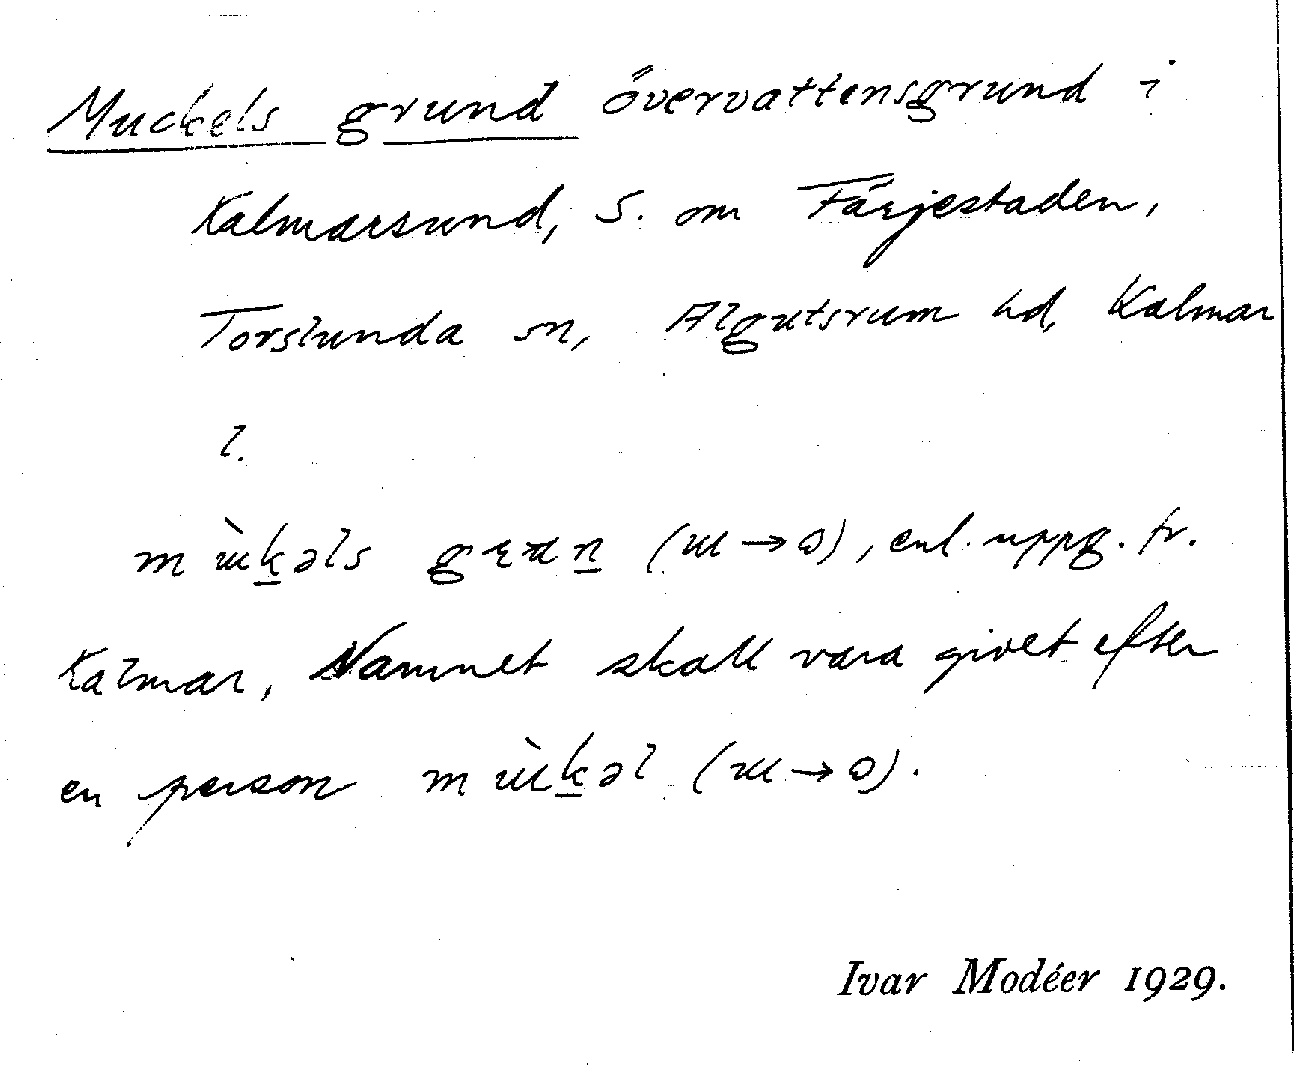 Muckels grund övervattensgrund i
Kalmarsund, S. om Färjestaden,
Torslunda sn, Algutsrum hd, Kalmar
l.
mɯ̀k̲əls gɽʉn̲ (ɯ → ɷ), enl. uppg. fr.
Kalmar, Namnet skall vara givet efter
en person mɯ̀k̲əl (ɯ → ɷ).
Ivar Modéer 1929.